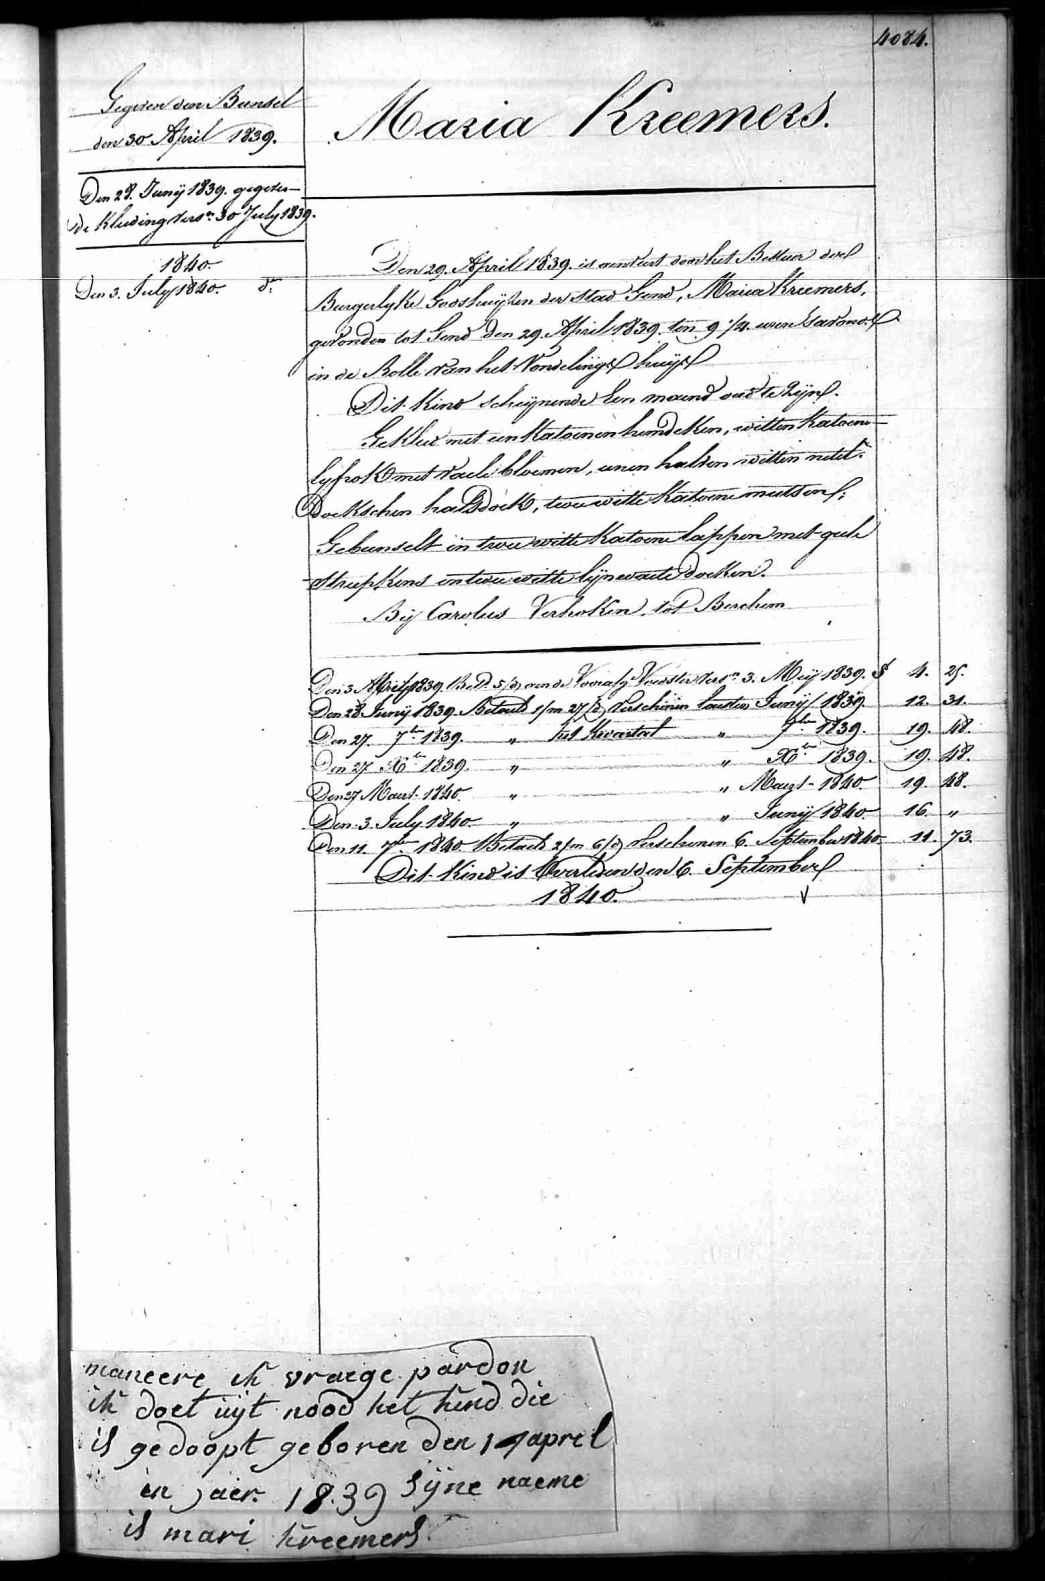 4084.
Gegeven den Bunsel
den 30 April 1839.
Den 28. Junij 1839. gegeven
de Kleeding versn. 30 July 1839.
1840.
Den 3. July 1840. do.
Maria Kreemers.
Den 29. April 1839. is door het Bestuur der
Burgerlyke Godshuijzen der Stad Gend, Maria Kreemers,
gevonden tot Gend den 29. April 1839. ten 9 1/4. uren s'avonds
in de Rolle van het Vondelings huijs
Dit Kind scheijnende Een maend oud te Zijn.
Gekleed met een Katoenen hemdeken, witten Katoene
lyfrok met bloemen, eenen halven witten
Doekschen halsdoek, twee witte Katoene mutsen;
Gebunselt in twee witte Katoene lappen met
streepkens en twee witte lijnwaete doeken.
Bij Carolus Verhoken tot Berchem
Den 3. 1839. Bet. 5/d aen de Voorafg Voedster versn. 3. Meij 1839. f 4. 25.
Den 28. Junij 1839. Betaeld 1/m 27/d verschenen lausten Junij 1839. 12. 31.
Den 27. 7ber 1839. " het Kwartael " 7ber 1839. 19. 48.
Den 27. Xber 1839. " " Xber 1839. 19. 48.
Den 27 Maert 1840. " " Maert 1840. 19. 48.
Den 3. July 1840. " " Junij 1840. 16. "
Den 11. 7ber 1840 Betaeld 2/m 6/d verschenen 6. September 1840 11. 73.
Dit Kind is Overleden den 6. September
1840.
maneere ik vraege pardon
ik doet uijt nood het kind die
is gedoopt geboren den 14 april
in jaer. 1839 sijne naeme
is mari kreemers.